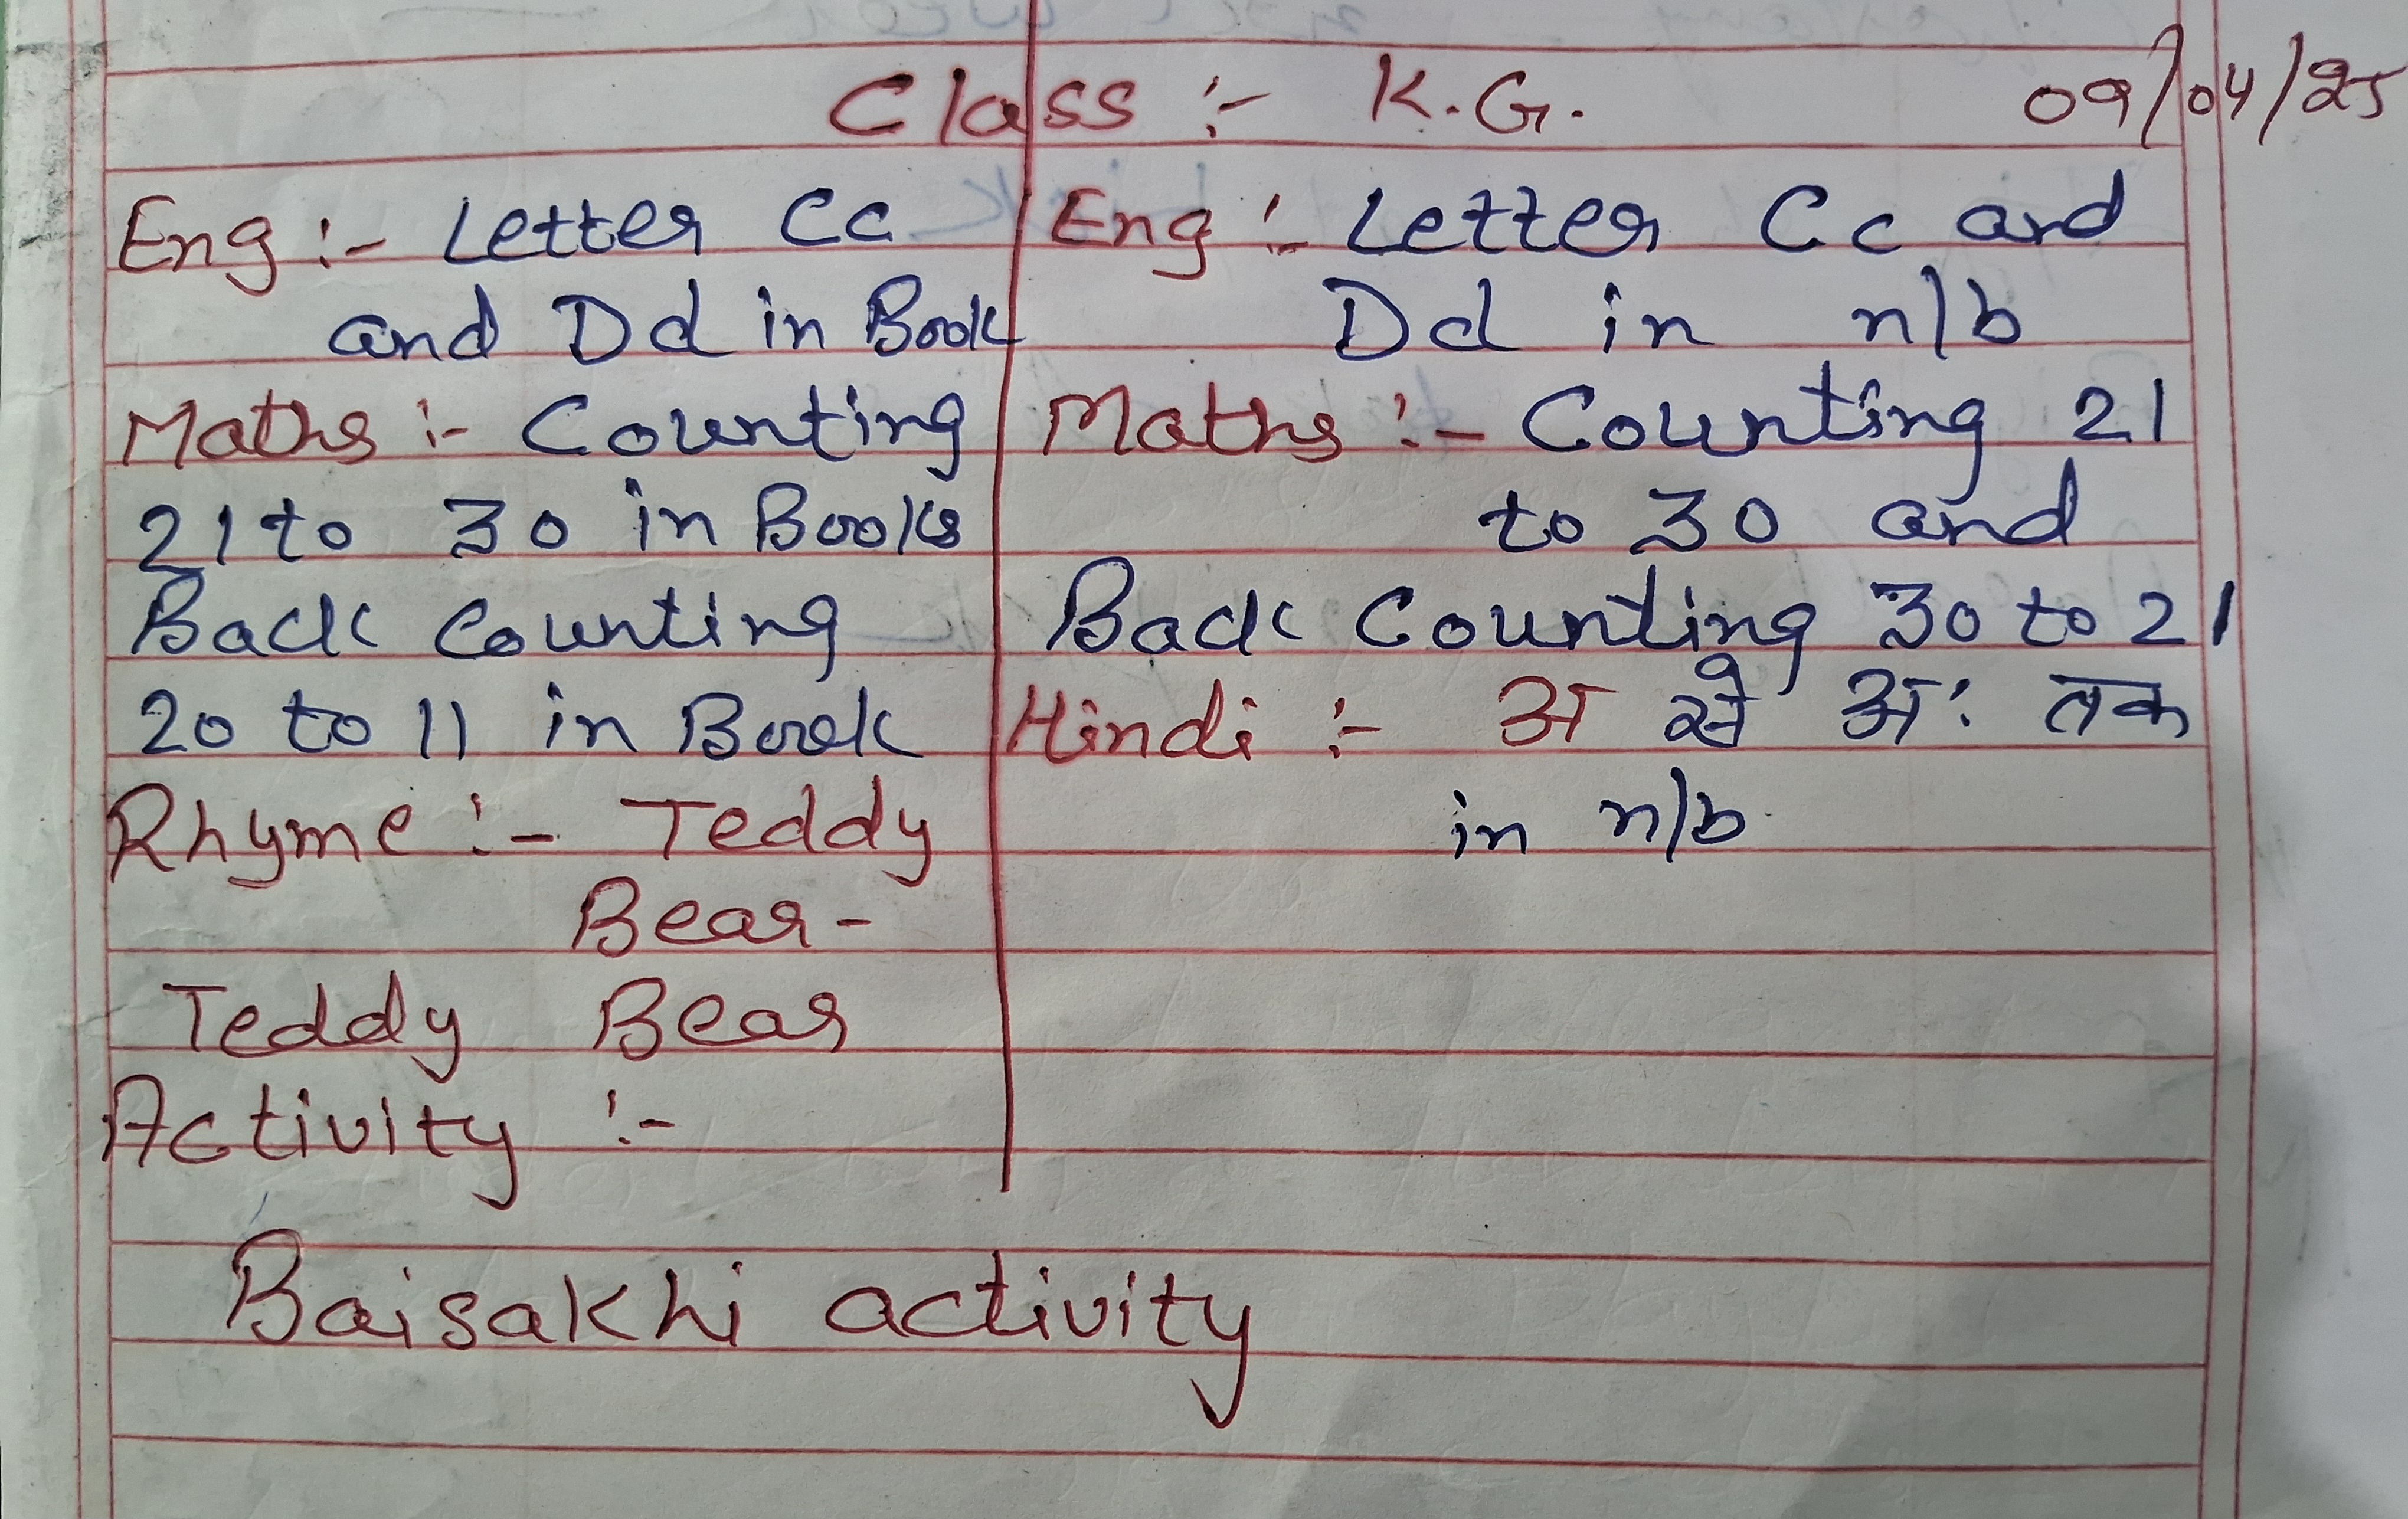 Class :- K.G. 09/04/25
Eng :- Letter Cc
and Dd in Book
Maths :- Counting
21 to 30 in Book &
Back Counting
20 to 11 in Book
Rhyme :- Teddy
Bear -
Teddy Bear
Activity :-
Eng :- Letter Cc and
Dd in n/b
Maths :- Counting 21
to 30 and
Back Counting 30 to 21
Hindi :- अ से अः तक
in n/b
Baisakhi activity